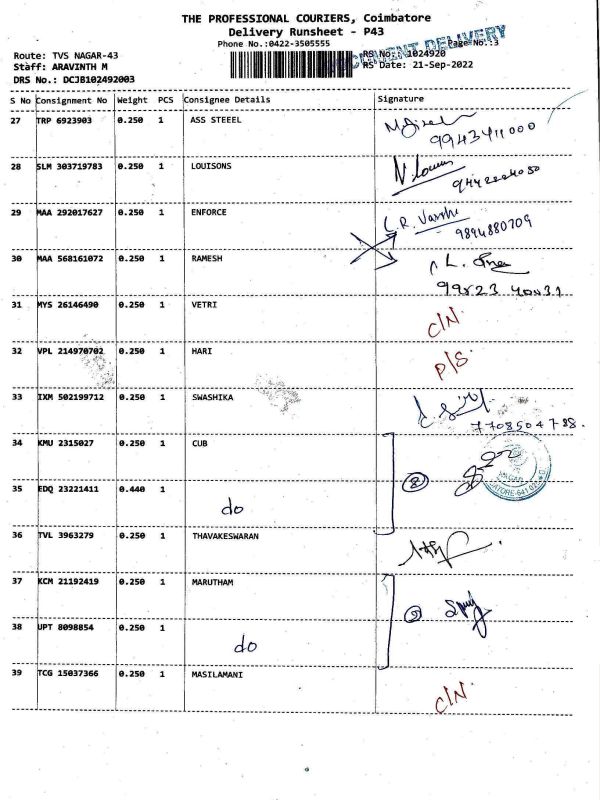 THE PROFESSIONAL COURIERS, Coimbatore
Delivery Runsheet - P43
Phone No.:0422-3505555
Page No.:3
DOCUMENT DELIVERY
Route: TVS NAGAR-43
RS No: 1024920
Staff: ARAVINTH M
RS Date: 21-Sep-2022
DRS No.: DCJB102492003
S No Consignment No Weight PCS Consignee Details Signature
27 TRP 6923903 0.250 1 ASS STEEEL
9943411000
28 SLM 303719783 0.250 1 LOUISONS
29 MAA 292017627 0.250 1 ENFORCE
9894880709
30 MAA 568161072 0.250 1 RAMESH
31 MYS 26146490 0.250 1 VETRI C/N.
32 VPL 214970702 0.250 1 HARI P/S.
33 IXM 502199712 0.250 1 SWASHIKA
7708504788.
34 KMU 2315027 0.250 1 CUB
35 EDQ 23221411 0.440 1 do
36 TVL 3963279 0.250 1 THAVAKESWARAN
37 KCM 21192419 0.250 1 MARUTHAM
38 UPT 8098854 0.250 1 do
39 TCG 15037366 0.250 1 MASILAMANI C/N.